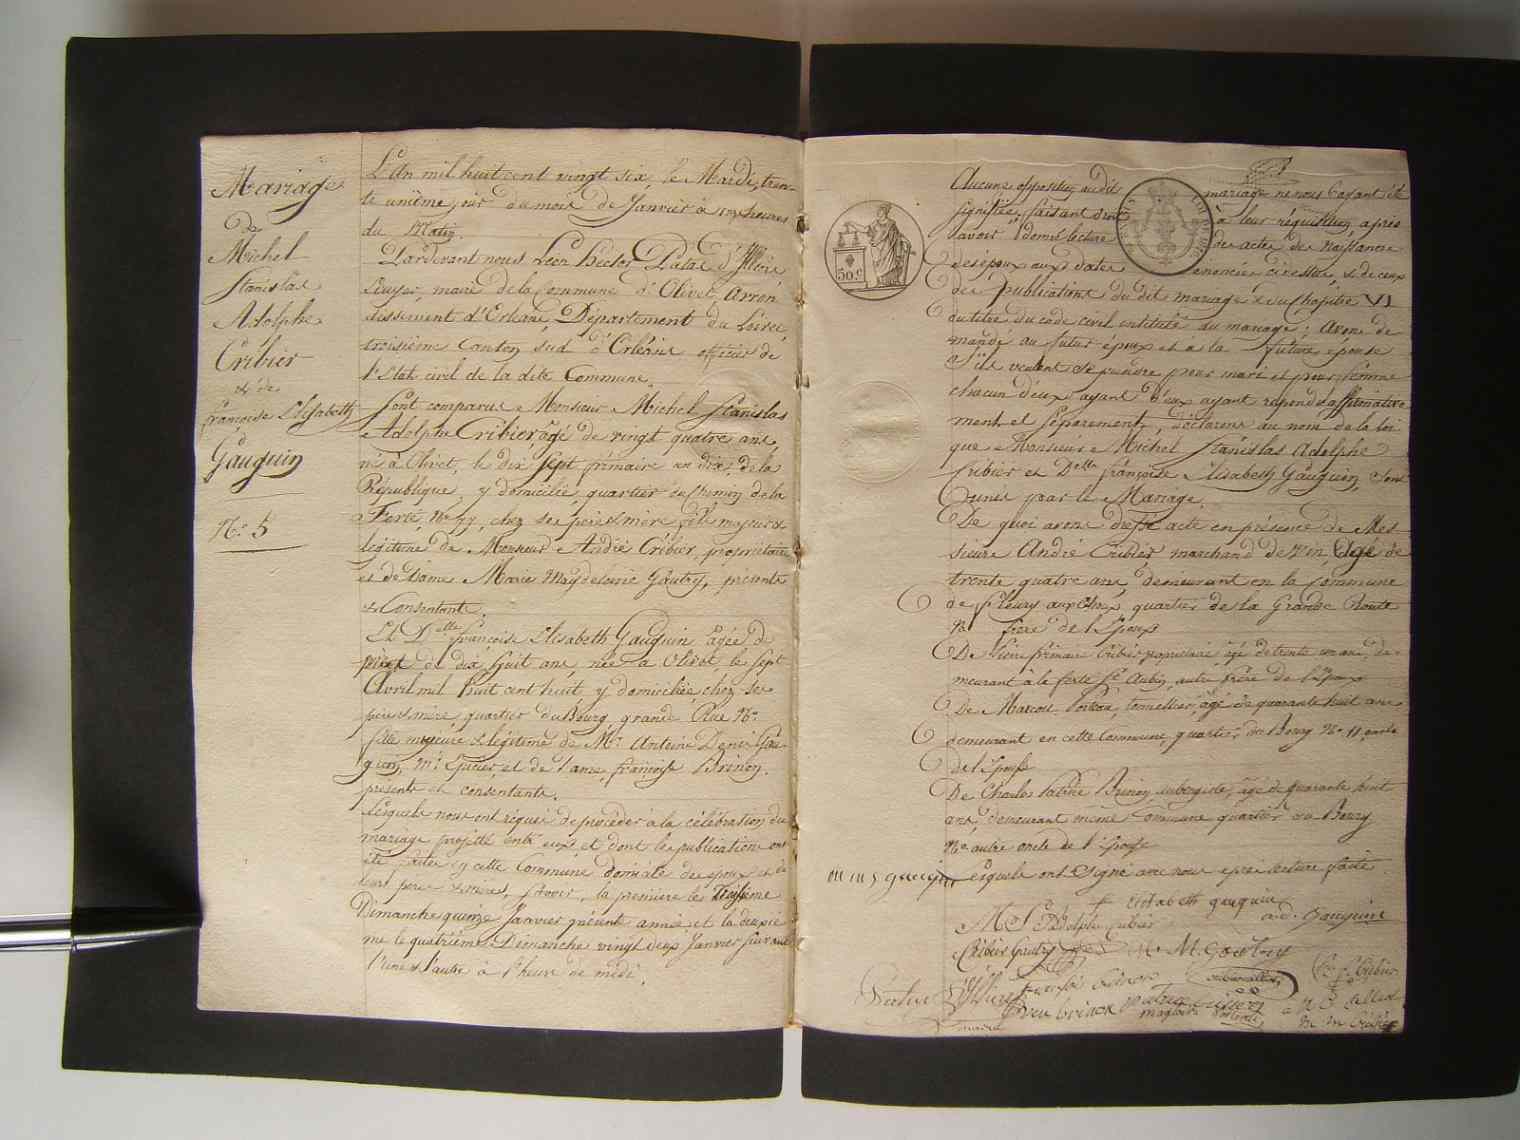 Mariage
de
Michel
Stanislas
Adolphe
Cribier
& de
françoise Elisabeth
Gauguin
N.° 5
L'An mil huit cent vingt six, le Mardi, tren-
te unième jour du mois de Janvier à heures
du Matin.
Pardevant nous Léon Hector Patas d'Illiers
Ecuyer, maire de la commune d'Olivet, Arron
dissement d'Orléans, Département du Loiret,
troisième canton sud d'Orléans officier de
l'Etat civil de la dite Commune.
Sont comparus Monsieur Michel Stanislas
Adolphe Cribier âgé de vingt quatre ans,
né à Olivet, le dix sept frimaire an dix, de la
République, y domicilié, quartier du chemin de la
Ferté, N° chez ses père & mère fils majeur &
légitime de Monsieur André Cribier, propriétaire
et de Dame Marie Magdeleine Gautry, présents
& Consentants.
Et D.elle françoise Elisabeth Gauguin âgée de
près de dix huit ans, née à Olivet le sept
Avril mil huit cent huit, y domiciliée, chez ses
père & mère, quartier du Bourg, grande Rue N.°
fille mineure & légitime de M.r Antoine Denis Gau-
guin, M.d Epicier et de Dame françoise Brinon.
présents et consentants.
Lesquels nous ont requis de procéder à la célébration du
mariage projetté entre eux et dont les publications ont
été faites en cette Commune domicile des époux et de
leurs pères & mères, savoir, la première le troisième
Dimanche quinze Janvier présente année et la deuxiè
me le quatrième Dimanche vingt deux Janvier suivant
l'une & l'autre à l'heure de midi.
50.c
Aucune opposition au dit mariage ne nous ayant été
signifiée; faisant droit à leur réquisition, après
avoir donné lecture des actes de Naissance
des époux aux dates énoncées ci dessus, & de ceux
des publications du dit mariage & du Chapitre VI
du titre du code civil intitulé du mariage; Avons de
mandé au futur époux et à la future épouse
S'ils veulent se prendre pour mari et pour femme
chacun d'eux ayant répondu affirmative
ment et séparement, déclarons au nom de la loi
que Monsieur Michel Stanislas Adolphe
Cribier et D.elle françoise Elisabeth Gauguin, sont
unis par le Mariage.
De quoi avons dressé acte en présence de Mes
sieurs André Cribier, marchand de vin, âgé de
trente quatre ans, demeurant en la commune
de fleury aux Choux, quartier de la Grande Route
N° frère de l'Epoux
De Pierre frimaire Cribier propriétaire, âgé de trente un ans, de-
meurant à la ferté S.t Aubin, autre frère de l'Epoux
De Marcou tonnelier, âgé de quarante huit ans
demeurant en cette Commune, quartier du Bourg N° 11, oncle
de l'Epouse
De Charles Brinon aubergiste, âgé de quarante huit
ans, demeurant même Commune quartier du Bourg
N° autre oncle de l'Epouse
Lesquels ont Signé avec nous après lecture faite
Elisabeth gauguin
M S Adolphe Cribier
a. d. Gauguin
Cribier Gautry
M. M. Gautry
D'Illiers
maire